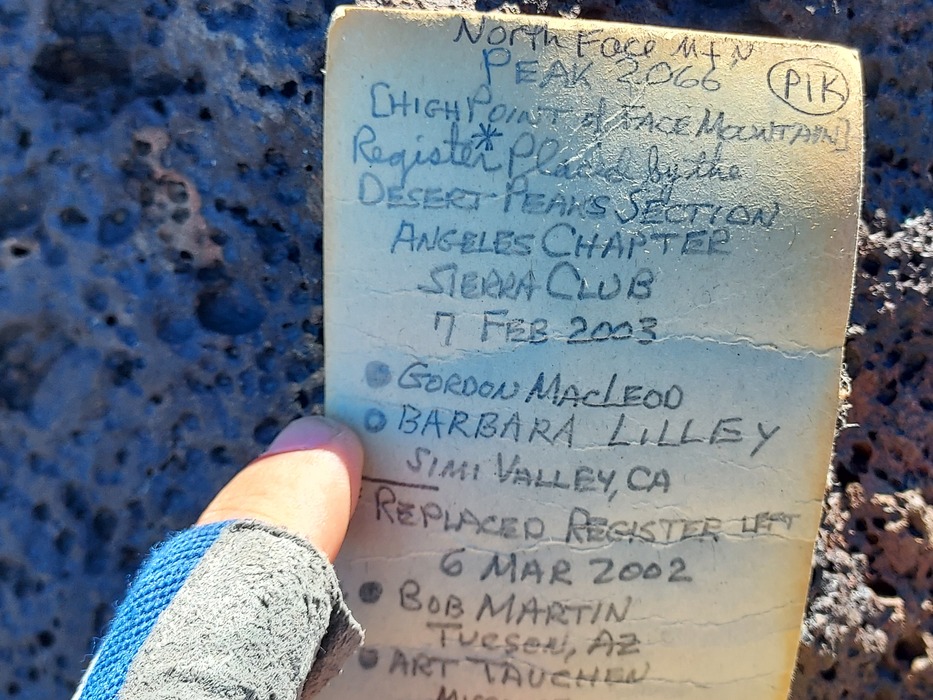 North Face Mtn
PEAK 2066
P1K
[HIGH POINT of FACE MOUNTAIN]
Register* Placed by the
DESERT PEAKS SECTION
ANGELES CHAPTER
SIERRA CLUB
7 FEB 2003
GORDON MACLEOD
BARBARA LILLEY
SIMI VALLEY, CA
REPLACED REGISTER LEFT
6 MAR 2002
BOB MARTIN
TUCSON, AZ
ART TAUCHEN